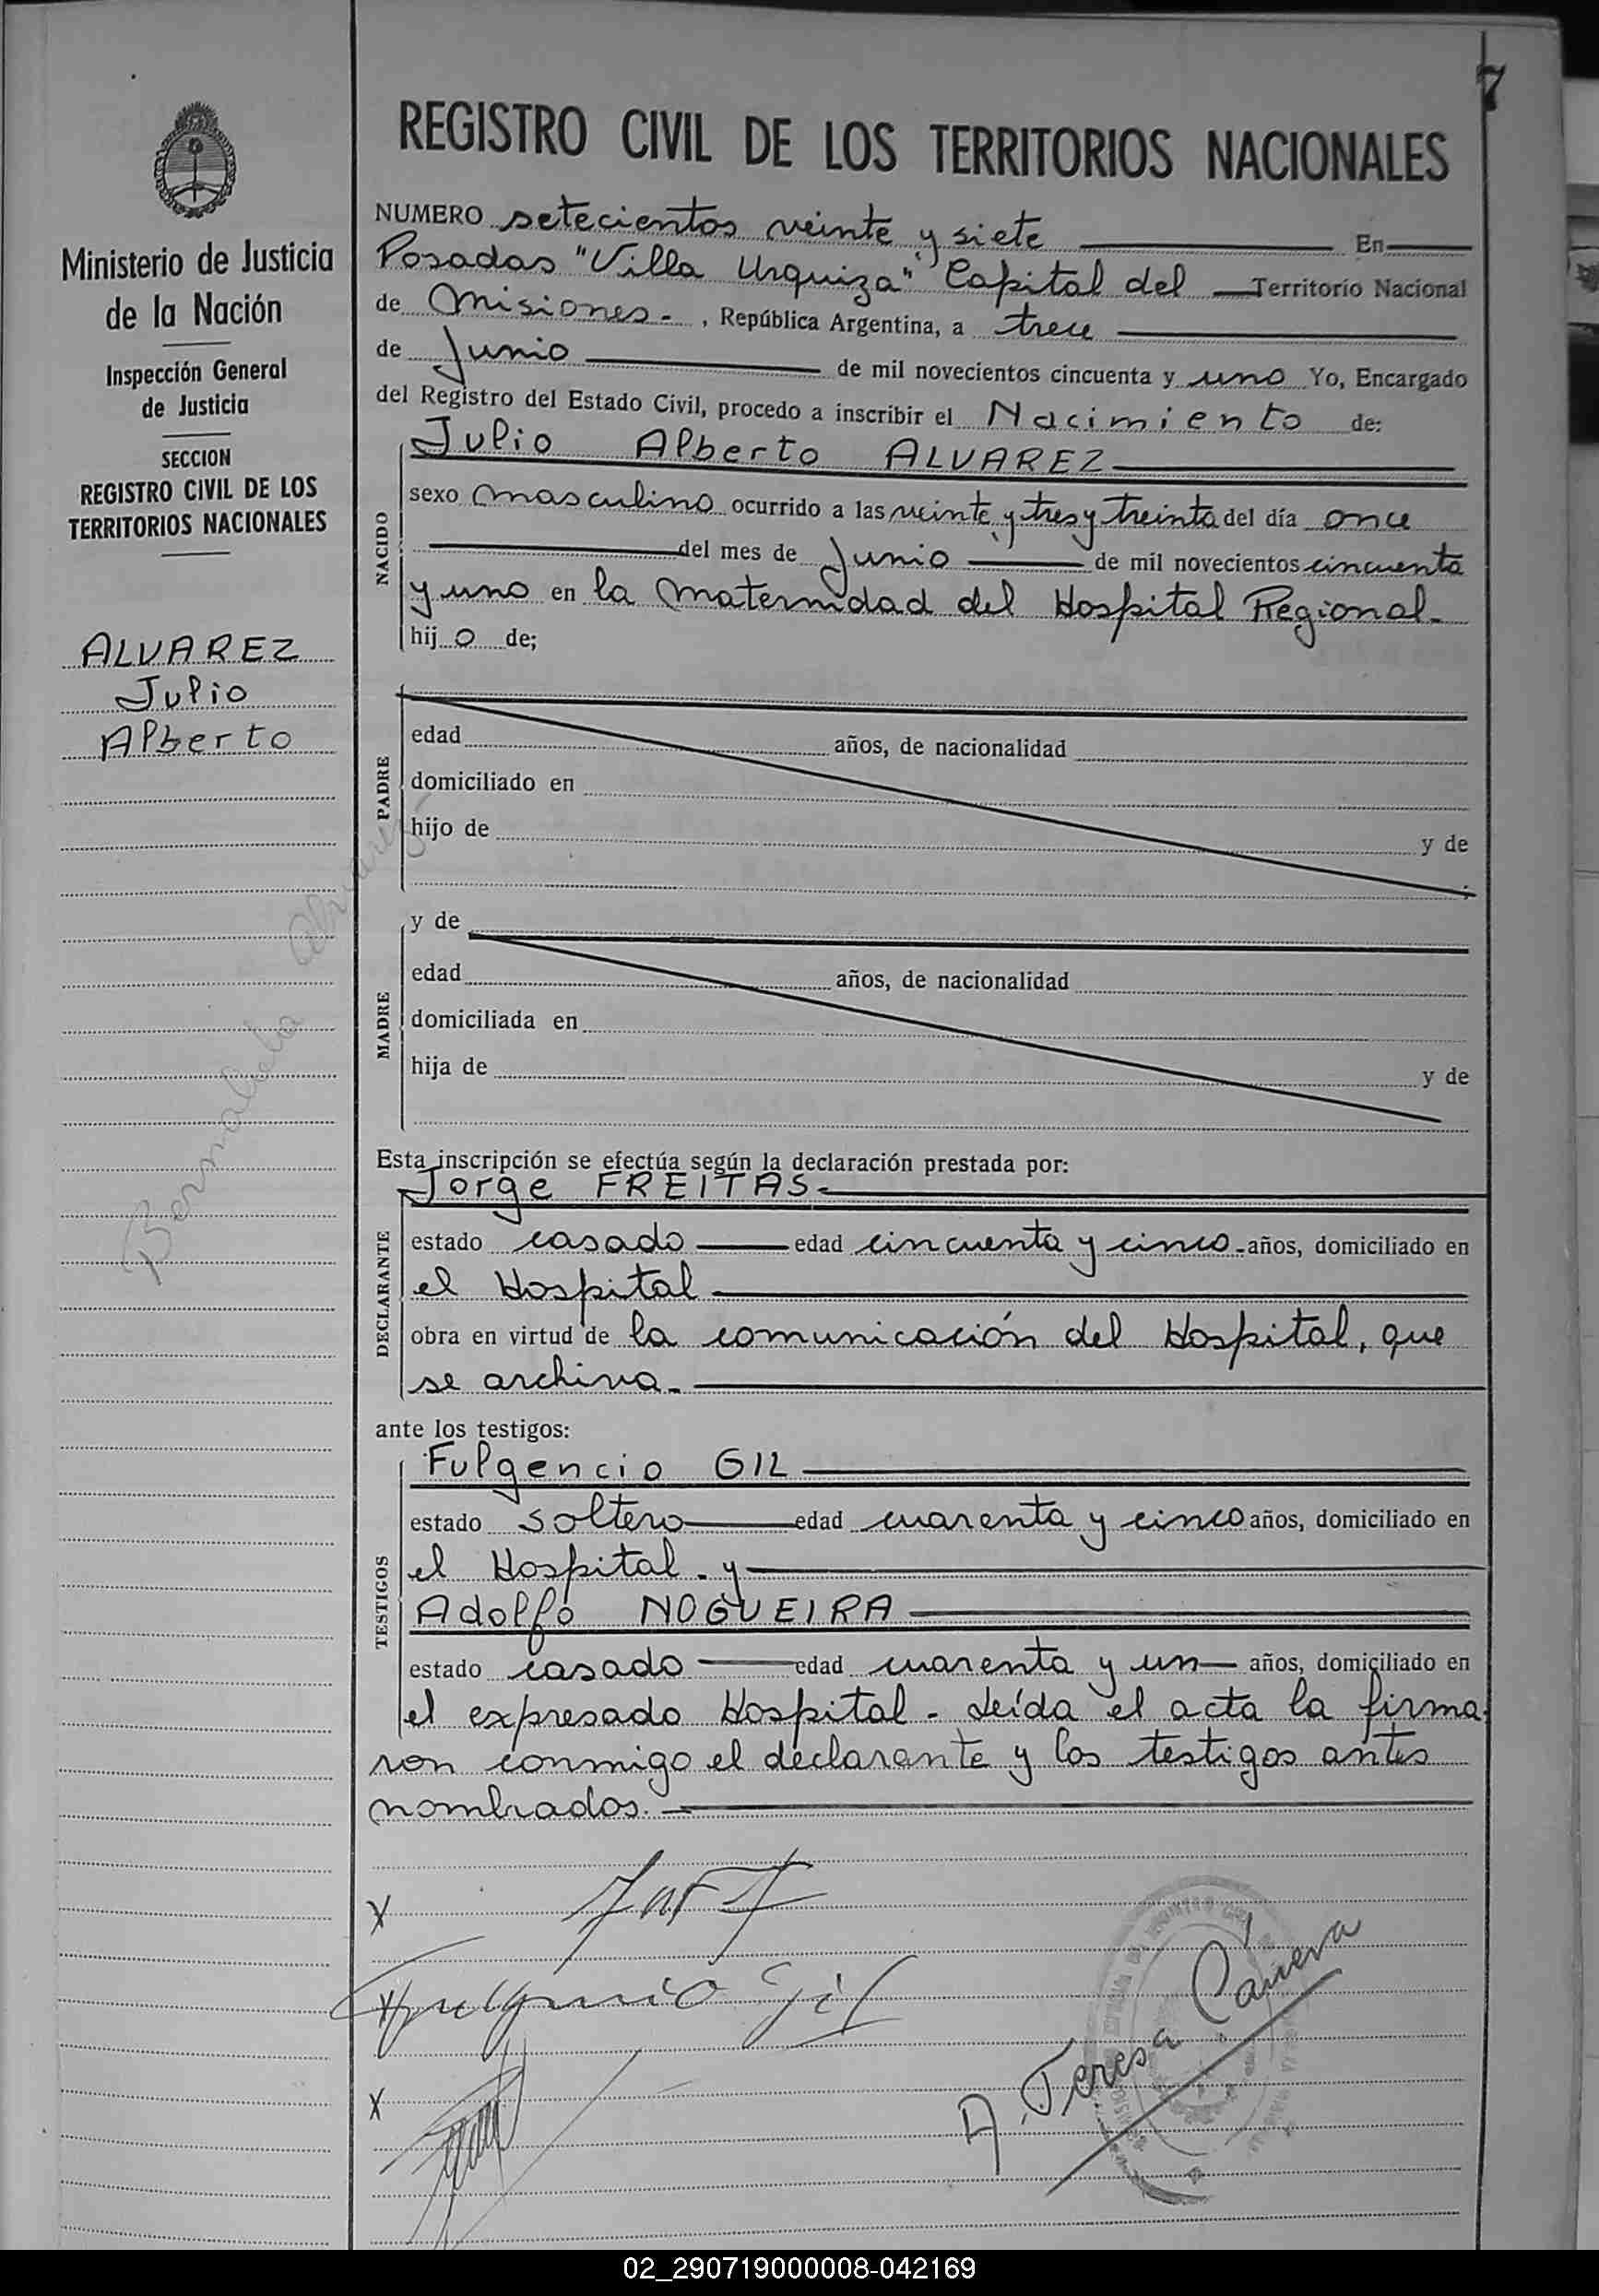 7
REGISTRO CIVIL DE LOS TERRITORIOS NACIONALES
Ministerio de Justicia
de la Nación
Inspección General
de Justicia
SECCION
REGISTRO CIVIL DE LOS
TERRITORIOS NACIONALES
ALVAREZ
Julio
Alberto
NUMERO setecientos veinte y siete En
Posadas "Villa Urquiza" Capital del Territorio Nacional
de Misiones.- , República Argentina, a trece
de Junio de mil novecientos cincuenta y uno Yo, Encargado
del Registro del Estado Civil, procedo a inscribir el Nacimiento de:
NACIDO
Julio Alberto ALVAREZ
sexo masculino ocurrido a las veinte y tres y treinta del día once
del mes de Junio de mil novecientos cincuenta
y uno en la Maternidad del Hospital Regional.
hijo de;
PADRE
edad años, de nacionalidad
domiciliado en
hijo de y de
MADRE
y de
edad años, de nacionalidad
domiciliada en
hija de y de
Esta inscripción se efectúa según la declaración prestada por:
DECLARANTE
Jorge FREITAS.
estado casado edad cincuenta y cinco.años, domiciliado en
el Hospital
obra en virtud de la comunicación del Hospital, que
se archiva.
ante los testigos:
TESTIGOS
Fulgencio GIL
estado soltero edad cuarenta y cinco años, domiciliado en
el Hospital. y
Adolfo NOGUEIRA
estado casado edad cuarenta y un años, domiciliado en
el expresado Hospital - Leída el acta la firma
ron conmigo el declarante y los testigos antes
nombrados.
X
X Fulgencio Gil
X
A. Teresa
02_290719000008-042169